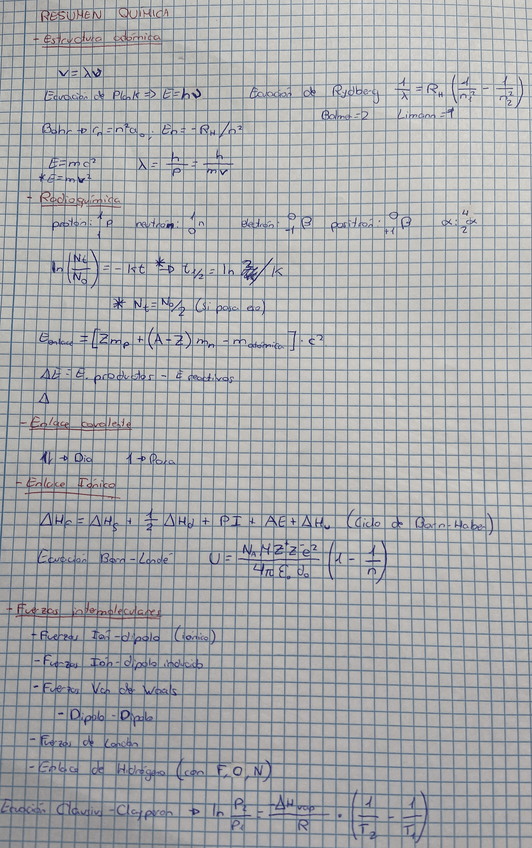 RESUMEN QUÍMICA
- Estructura atómica
v = λν
Ecuación de Plank => E = hν    Ecuación de Rydberg 1/λ = R_H (1/n₁² - 1/n₂²)
Balmer=2    Limann=1
Bohr → rn = n²a₀ ; En = -R_H/n²
E = mc²    λ = h/p = h/mv
*E = mv²
- Radioquímica
proton: ¹₁p    neutrón: ¹₀n    electrón: ⁰₋₁β    positrón: ⁰₊₁β    α: ⁴₂α
ln(Nt/N₀) = -kt *=> t₁/₂ = ln 2/k
* Nt = N₀/2 (Si pasa eso)
Eenlace = [Zmp + (A-Z)mn - matómica] · c²
ΔE = E. productos - E reactivos
Δ
- Enlace covalente
↑↓ → Dia    1 → Para
- Enlace Iónico
ΔHf = ΔHs + 1/2 ΔHd + PI + AE + ΔHu (Ciclo de Born-Haber)
Ecuación Born-Landé    U = N_A M Z⁺Z⁻e² / 4πε₀d₀ (1 - 1/n)
- Fuerzas intermoleculares
- Fuerzas Ion-dipolo (iónico)
- Fuerzas Ión-dipolo inducido
- Fuerzas Van de Waals
- Dipolo-Dipolo
- Fuerzas de London
- Enlace de Hidrógeno (con F, O, N)
Ecuación Clausius-Clapyron → ln P₂/P₁ = -ΔHvap/R · (1/T₂ - 1/T₁)